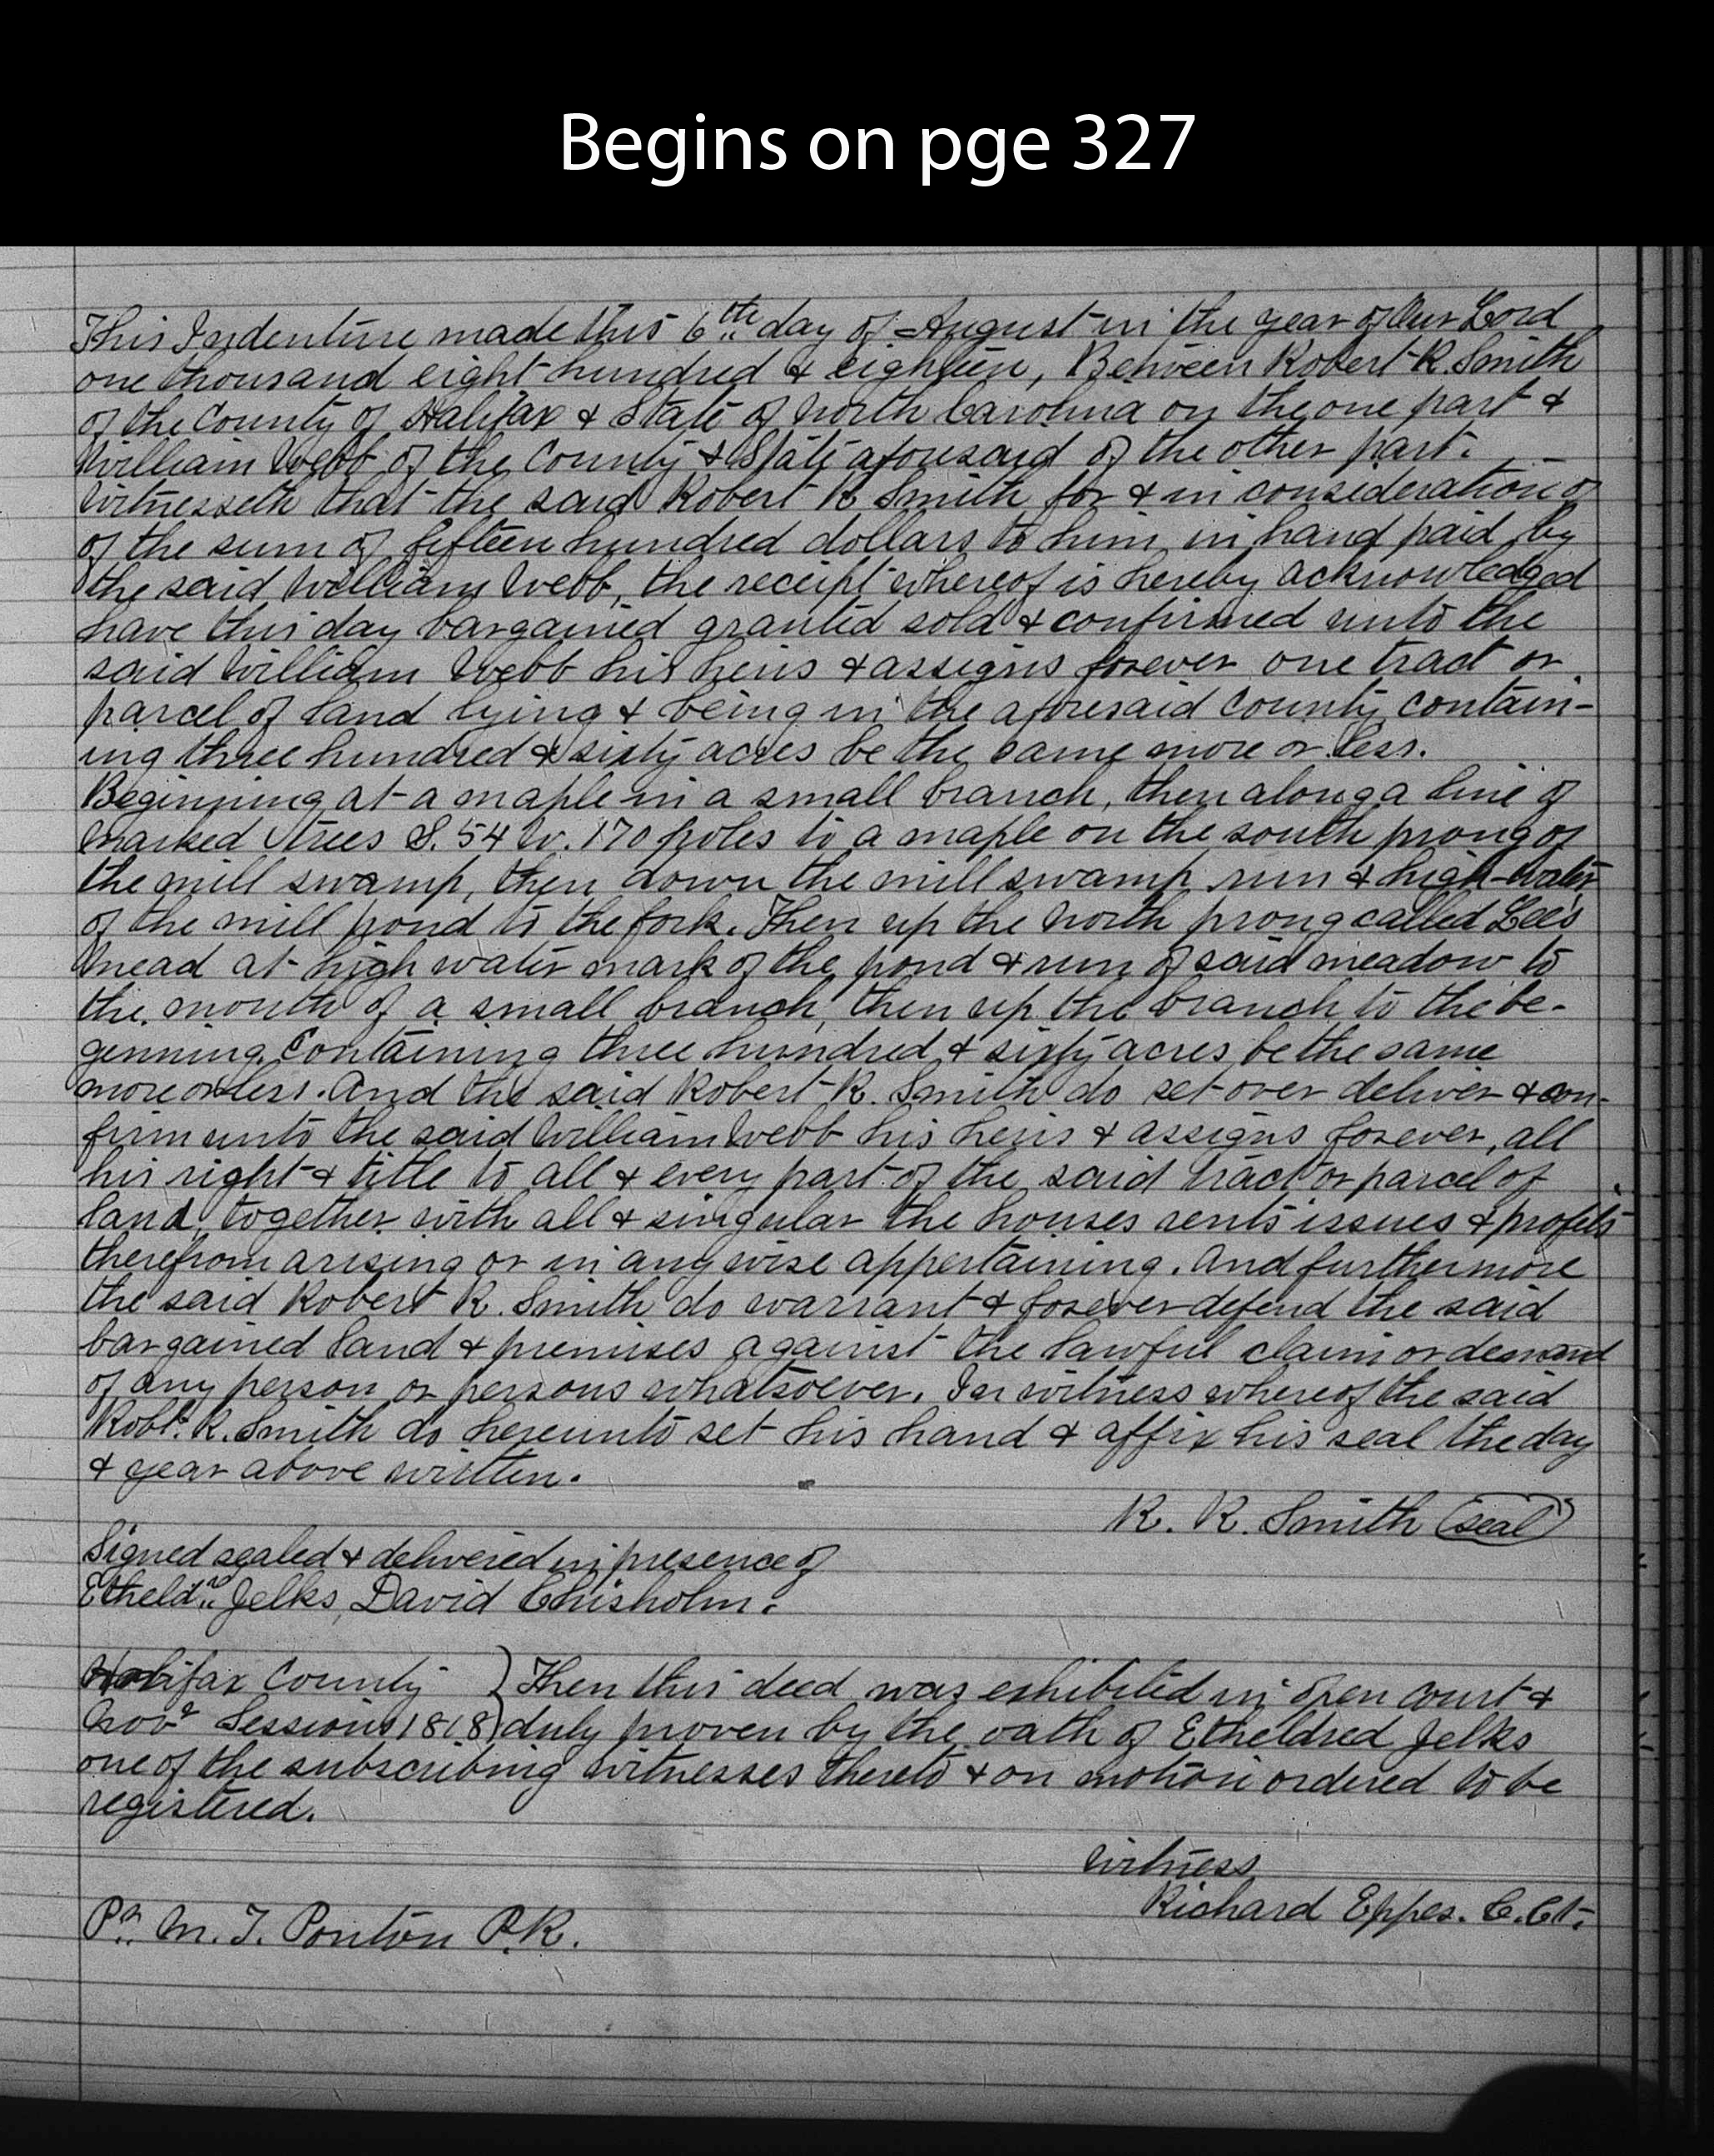 Begins on pge 327
This Indenture made this 6th day of August in the year of Our Lord
one thousand eight hundred & eighteen, Between Robert R. Smith
of the County of Halifax & State of North Carolina on the one part &
William Webb of the County & State aforesaid of the other part.
Witnesseth that the said Robert R Smith for & in consideration of
of the sum of fifteen hundred dollars to him in hand paid by
the said William Webb, the receipt whereof is hereby acknowledged
have this day bargained granted sold & confirmed unto the
said William Webb his heirs & assigns forever one tract or
parcel of land lying & being in the aforesaid County contain-
ing three hundred & sixty acres be the same more or less.
Beginning at a maple in a small branch, then along a line of
marked trees S. 54 W. 170 poles to a maple on the south prong of
the mill swamp, then down the mill swamp run & high-water
of the mill pond to the fork. Then up the North prong called Lee's
Mead at high water mark of the pond & run of said meadow to
the mouth of a small branch, then up the branch to the be-
ginning, Containing three hundred & sixty acres be the same
more or less. And the said Robert R. Smith do set over deliver & con-
firm unto the said William Webb his heirs & assigns forever, all
his right & title to all & every part of the said tract or parcel of
land, together with all & singular the houses rents issues & profits
therefrom arising or in any wise appertaining. And furthermore
the said Robert R. Smith do warrant & forever defend the said
bargained land & premises against the lawful claim or demand
of any person or persons whatsoever. In witness whereof the said
Robt. R. Smith do hereunto set his hand & affix his seal the day
& year above written.
R. R. Smith (seal)
Signed sealed & delivered in presence of
Etheldd Jelks, David Chisholm.
Halifax County } Then this deed was exhibited in open court &
Novr Sessions 1818 } duly proven by the oath of Etheldred Jelks
one of the subscribing witnesses thereto & on motion ordered to be
registered.
Witness
Richard Eppes. C.Ct.
Pr. M. T. Ponton P.R.